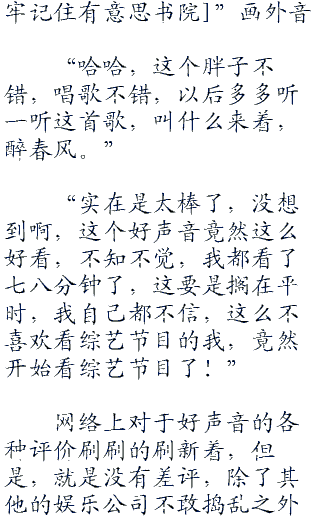 牢记住有意思书院]”画外音
“哈哈，这个胖子不
错，唱歌不错，以后多多听
一听这首歌，叫什么来着，
醉春风。”
“实在是太棒了，没想
到啊，这个好声音竟然这么
好看，不知不觉，我都看了
七八分钟了，这要是搁在平
时，我自己都不信，这么不
喜欢看综艺节目的我，竟然
开始看综艺节目了！”
网络上对于好声音的各
种评价刷刷的刷新着，但
是，就是没有差评，除了其
他的娱乐公司不敢捣乱之外